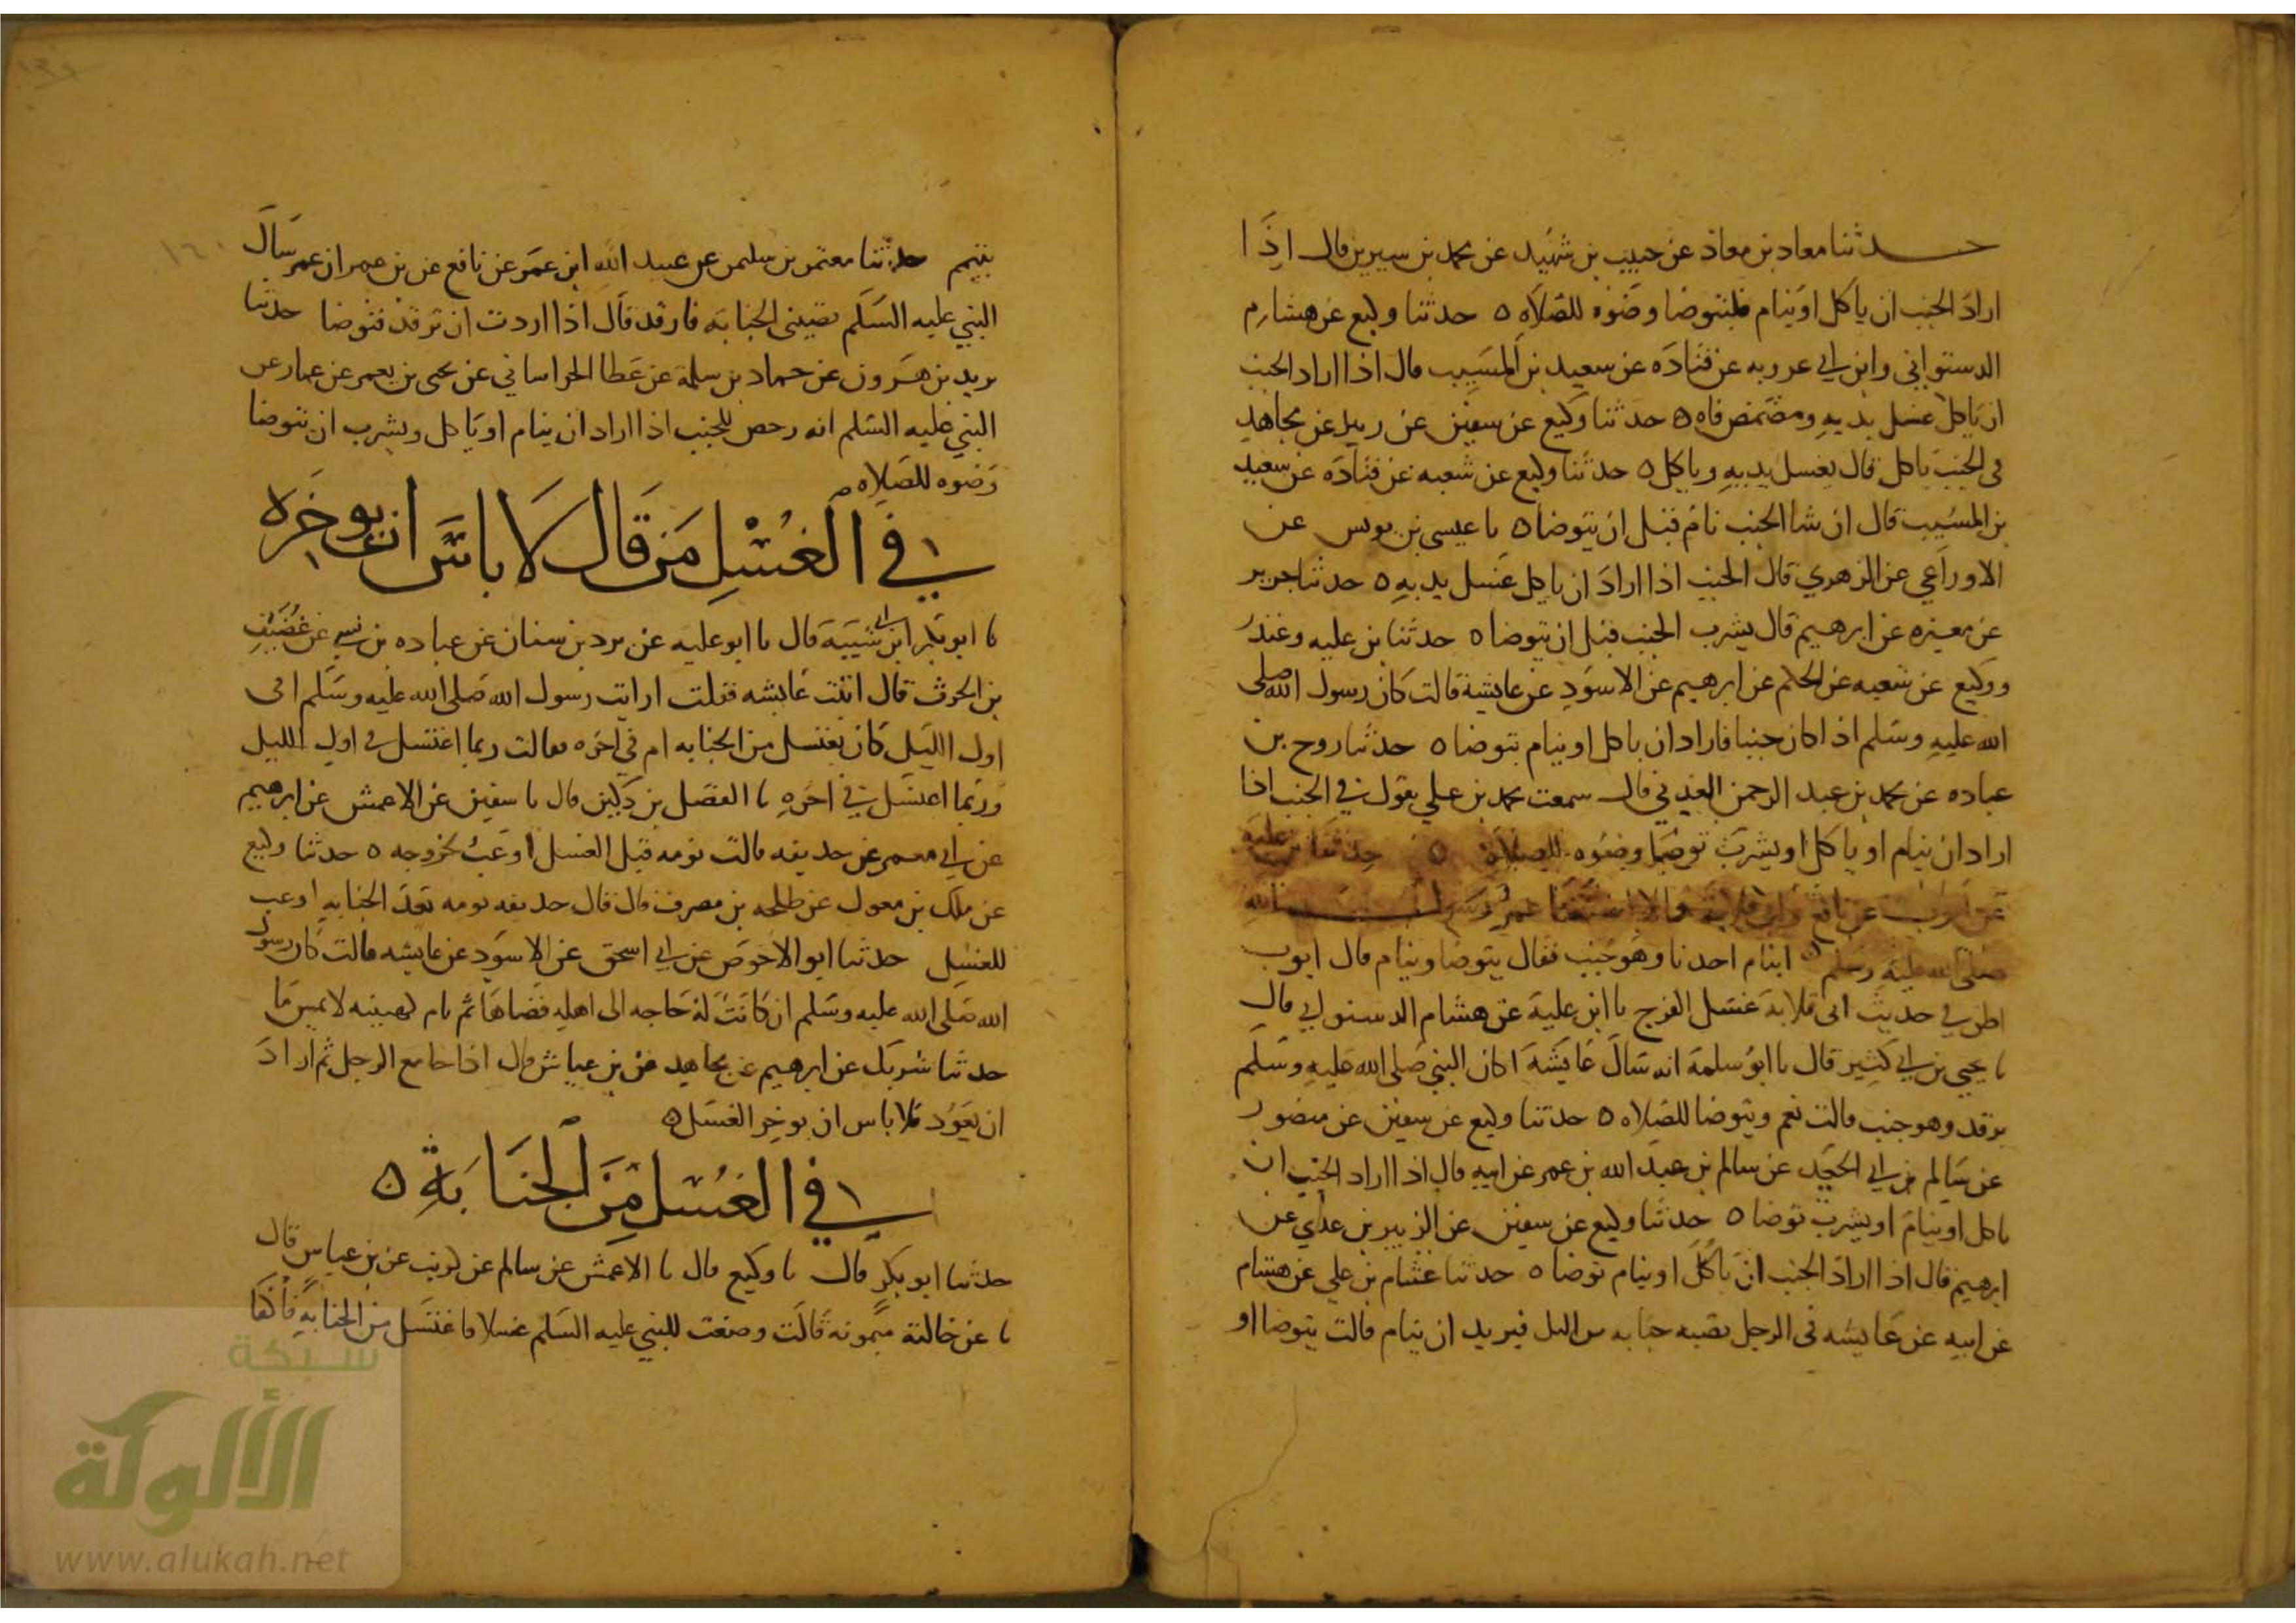 حدثنا معاد بن معاذ عن حبيب بن شهيد عن محمد بن سيرين قال اذا
اراد الجنب ان ياكل او ينام فليتوضا وضوه للصلاه ٥ حدثنا وكيع عن هشام
الدستوائى وابن ابي عروبه عن قتادة عن سعيد بن المسيب قال اذا اراد الجنب
ان ياكل غسل يديه ومضمض فاه ٥ حدثنا وكيع عن سفين عن زبيد عن مجاهد
فى الجنب ياكل قال يغسل يديه وياكل ٥ حدثنا وكيع عن شعبه عن قتادة عن سعيد
بن المسيب قال ان شا الجنب نام قبل ان يتوضا ٥ نا عيسى بن يونس عن
الاوزاعي عن الزهري قال الجنب اذا اراد ان ياكل غسل يديه ٥ حدثنا جرير
عن مغيره عن ابرهيم قال يشرب الجنب قبل ان يتوضا ٥ حدثنا بن عليه وغندر
ووكيع عن شعبه عن الحكم عن ابرهيم عن الاسود عن عايشة قالت كان رسول الله صلى
الله عليه وسلم اذا كان جنبا فاراد ان ياكل او ينام توضا ٥ حدثنا روح بن
عباده عن محمد بن عبد الرحمن العدني قال سمعت محمد بن علي يقول في الجنب اذا
اراد ان ينام او ياكل او يشرب توضا وضوه للصلاة ٥ حدثنا بن علية
عن ايوب عن نافع وابي قلابة قالا استفتا عمر رسول الله
صلى الله عليه وسلم اينام احدنا وهو جنب فقال يتوضا وينام قال ايوب
اظن في حديث ابى قلابة غسل الفرج نا ابن علية عن هشام الدستوايي قال
نا يحيى بن ابي كثير قال نا ابو سلمة انه سال عايشة اكان النبي صلى الله عليه وسلم
يرقد وهو جنب قالت نعم ويتوضا للصلاه ٥ حدثنا وكيع عن سفين عن منصور
عن سالم بن ابي الجعد عن سالم بن عبد الله بن عمر عن ابيه قال اذا اراد الجنب ان
ياكل او ينام او يشرب توضا ٥ حدثنا وكيع عن سفين عن الزبير بن عدي عن
ابرهيم قال اذا اراد الجنب ان ياكل او ينام توضا ٥ حدثنا عثام بن علي عن هشام
عن ابيه عن عايشه فى الرجل تصيبه جنابه من الليل فيريد ان ينام قالت يتوضا او
يتيمم حدثنا معتمر بن سليمن عن عبيد الله ابن عمر عن نافع عن بن عمر ان عمر سال
النبي عليه السلم تصيبنى الجنابة فارقد قال اذا اردت ان ترقد فتوضا حدثنا
يزيد بن هرون عن حماد بن سلمة عن عطا الخراساني عن يحيى بن يعمر عن عمار عن
النبي عليه السلم انه رخص للجنب اذا اراد ان ينام او ياكل ويشرب ان يتوضا
وضوه للصلاه
في الغسل من قال لا باس ان يوخره
نا ابو بكر ابن ابي شيبة قال نا ابو عليه عن برد بن سنان عن عباده بن نسي عن غضيف
بن الحرث قال اتيت عايشه فقلت ارايت رسول الله صلى الله عليه وسلم افى
اول الليل كان يغتسل من الجنابه ام في اخره فقالت ربما اغتسل في اول الليل
وربما اغتسل في اخره نا الفضل بن دكين قال نا سفين عن الاعمش عن ابرهيم
عن ابي معمر عن حذيفه قالت نومه قبل الغسل اوعب لخروجه ٥ حدثنا وكيع
عن ملك بن مغول عن طلحه بن مصرف قال قال حذيفه نومه بعد الجنابه اوعب
للغسل حدثنا ابو الاحوص عن ابي اسحق عن الاسود عن عايشه قالت كان رسول
الله صلى الله عليه وسلم ان كانت له حاجه الى اهله قضاها ثم نام كهيئته لا يمس ما
حدثنا شريك عن ابرهيم عن مجاهد عن بن عباس قال اذا جامع الرجل ثم اراد
ان يعود فلا باس ان يوخر الغسل ٥
في الغسل من الجنابة ٥
حدثنا ابو بكر قال نا وكيع قال نا الاعمش عن سالم عن كريب عن بن عباس قال
نا عن خالتة ميمونه قالت وضعت للنبي عليه السلم غسلا فاغتسل من الجنابة فاكفا
شبكة
الألوكة
www.alukah.net